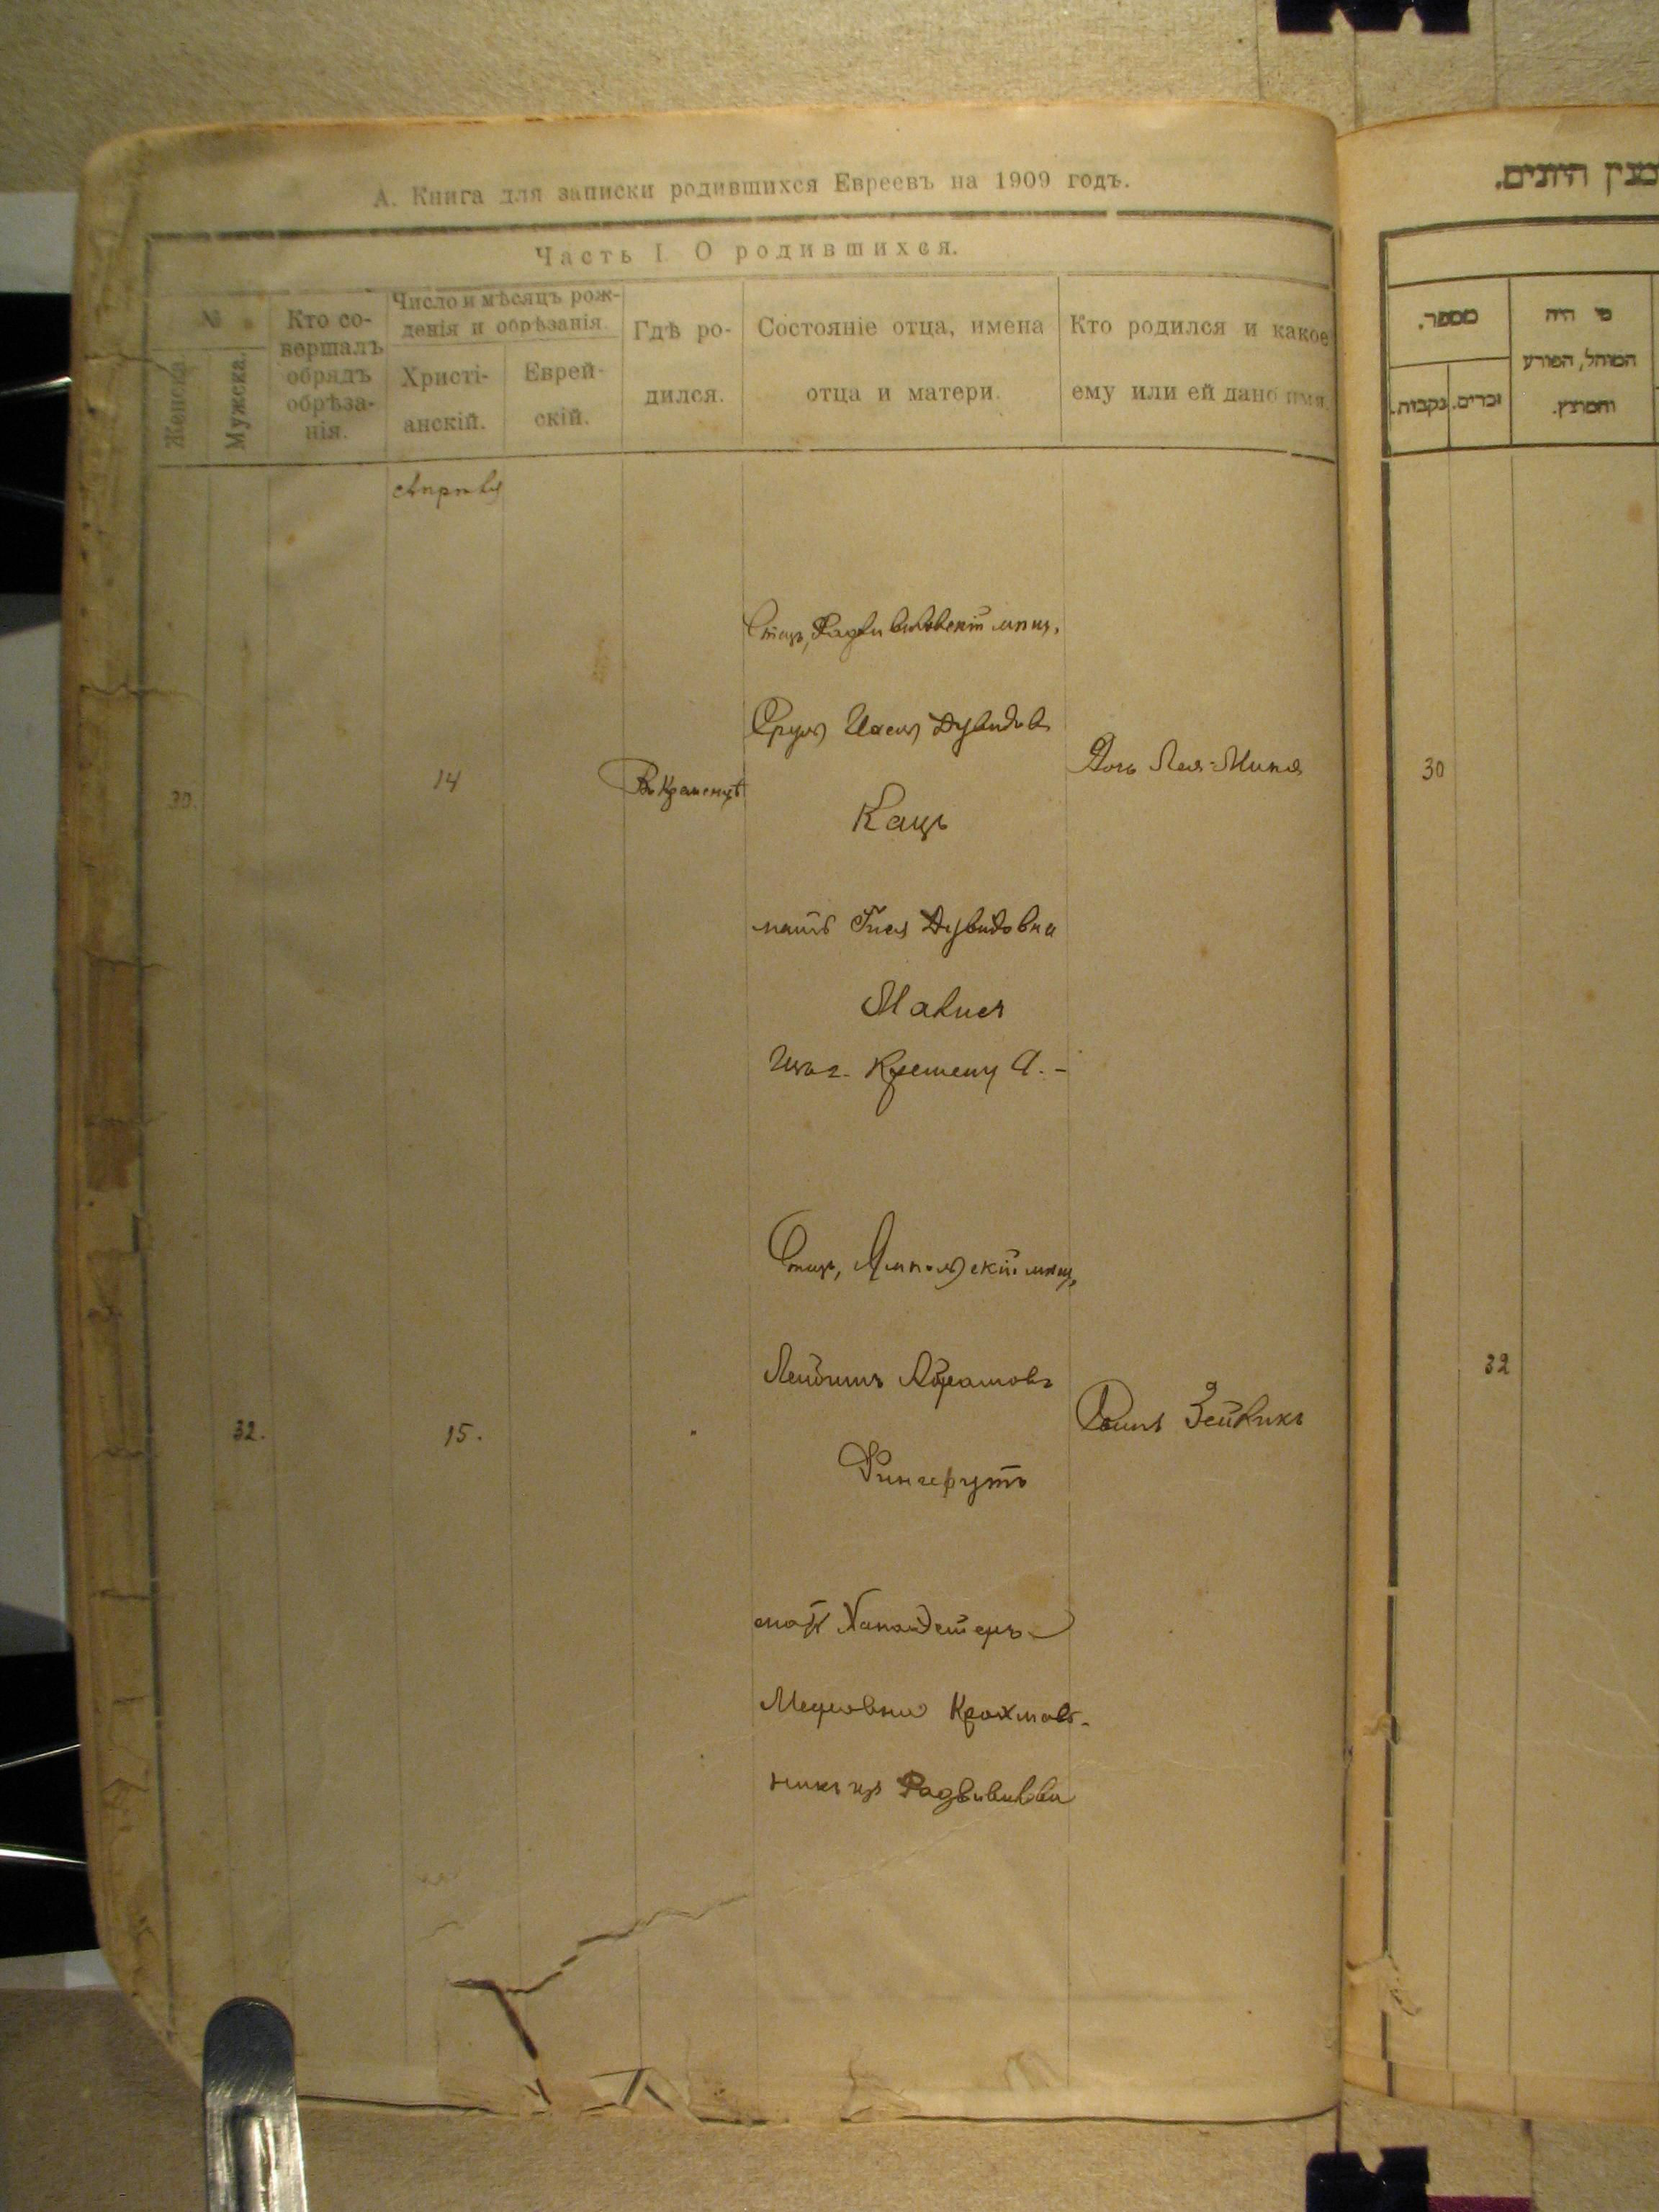 А. Книга для записки родившихся Евреевъ на 1909 годъ.
Часть I О родившихся.
№
Женска.
Мужска.
Кто со-
вершалъ
обрядъ
обрѣза-
нія.
Число и мѣсяцъ рож-
денія и обрѣзанія.
Христі-
анскій.
Еврей-
скій.
Гдѣ ро-
дился.
Состояніе отца, имена
отца и матери.
Кто родился и какое
ему или ей дано имя.
Апрѣля
30.
14
Въ Кременцѣ
Отецъ, Радзивиловскій мѣщ.
Срул Иосъ Дувидовъ
Кацъ
мать Гися Дувидовна
Малися
Изъ г. Кременца. -
Дочь Лея-Миня
32.
15.
"
Отецъ, Ямпольскій мѣщ.
Лейбишъ Абрамовъ
Фингерутъ
мать Хана Эстеръ
Меировна Крохмаль-
никъ изъ Радзивилова
Сынъ Зейликъ
מספר.
נקבות.
זכרים.
מי היה
המוהל, הפורע
והמוצץ.
30
32